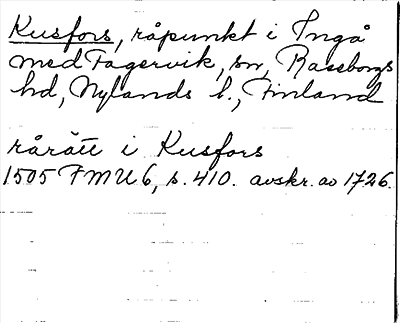 Kusfors, råpunkt i Ingå
med Fagervik, sn, Raseborgs
hd, Nylands l., Finland
rårätt i Kusfors
1505 FMU 6, s. 410. avskr. av 1726.